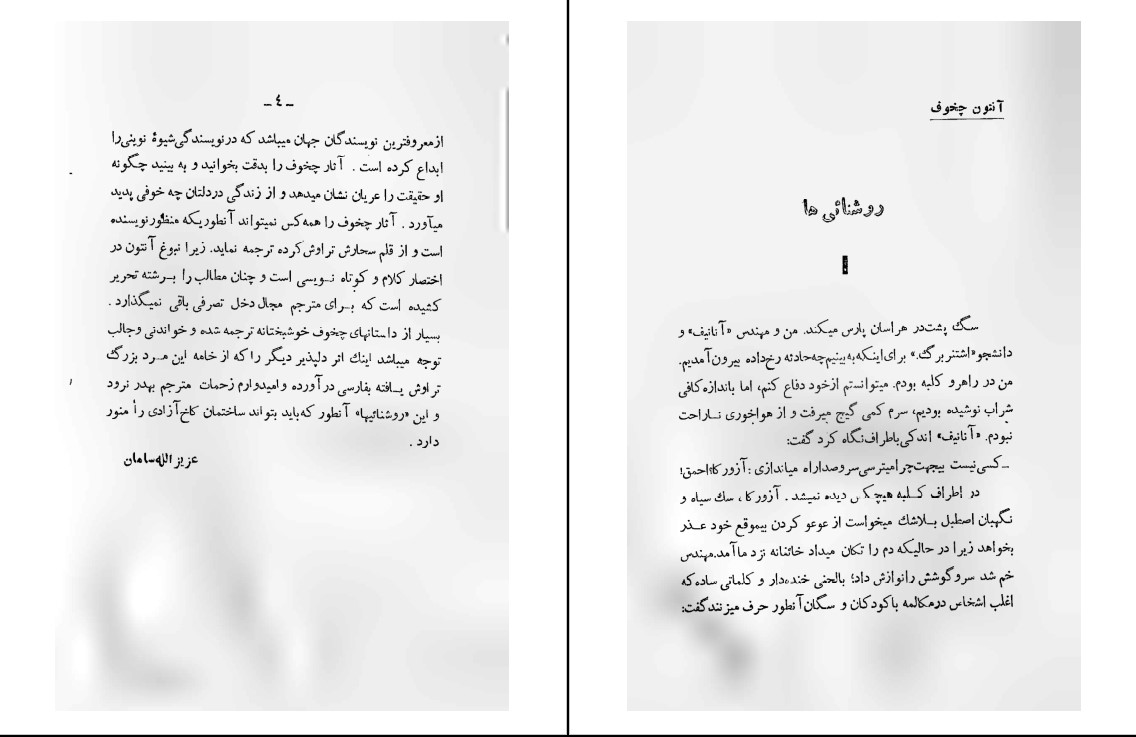 ـ ٤ ـ
از معروفترین نویسندگان جهان میباشد که در نویسندگی شیوهٔ نوینی را
ابداع کرده است . آثار چخوف را بدقت بخوانید و به بینید چگونه
او حقیقت را عریان نشان میدهد و از زندگی دردلتان چه خوفی پدید
میآورد . آثار چخوف را همه کس نمیتواند آنطوریکه منظور نویسنده
است و از قلم سحارش تراوش کرده ترجمه نماید. زیرا نبوغ آنتون در
اختصار کلام و کوتاه نویسی است و چنان مطالب را برشته تحریر
کشیده است که برای مترجم مجال دخل تصرفی باقی نمیگذارد .
بسیار از داستانهای چخوف خوشبختانه ترجمه شده و خواندنی وجالب
توجه میباشد اینك اثر دلپذیر دیگر را که از خامه این مرد بزرگ
تراوش یافته بفارسی درآورده و امیدوارم زحمات مترجم بهدر نرود
و این «روشنائیها» آنطور که باید بتواند ساختمان کاخ آزادی را منور
دارد .
عزیزالله سامان
آنتون چخوف
روشنائی ها
سگ پشت در هراسان پارس میکند. من و مهندس «آنانیف» و
دانشجو «اشتنربرگ.» برای اینکه به بینیم چه حادثه رخ داده بیرون آمدیم.
من در راهرو کلبه بودم. میتوانستم از خود دفاع کنم، اما باندازه کافی
شراب نوشیده بودیم، سرم کمی گیج میرفت و از هواخوری ناراحت
نبودم. «آنانیف» اندکی باطراف نگاه کرد گفت:
ـ کسی نیست بیجهت چرا میترسی سروصدا راه میاندازی : آزورکا؟ احمق!
در اطراف کلبه هیچکس دیده نمیشد . آزورکا، سك سیاه و
نگهبان اصطبل بلاشك میخواست از عوعو کردن بیموقع خود عذر
بخواهد زیرا در حالیکه دم را تکان میداد خائنانه نزد ما آمد. مهندس
خم شد سر و گوشش را نوازش داد؛ بالحنی خنده دار و کلماتی ساده که
اغلب اشخاص در مکالمه با کودکان و سگان آنطور حرف میزنند گفت: